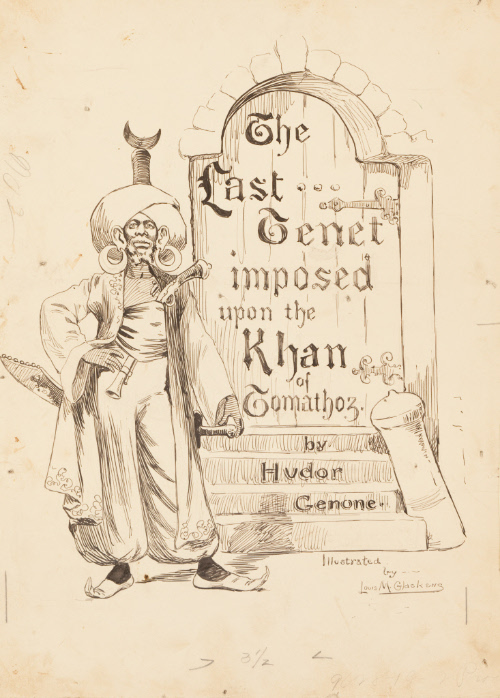 The
Last
Tenet
imposed
upon the
Khan
of
Tomathoz.
by
Hudor
Genone.
Illustrated
by
Louis M. Glackens
3 1/2